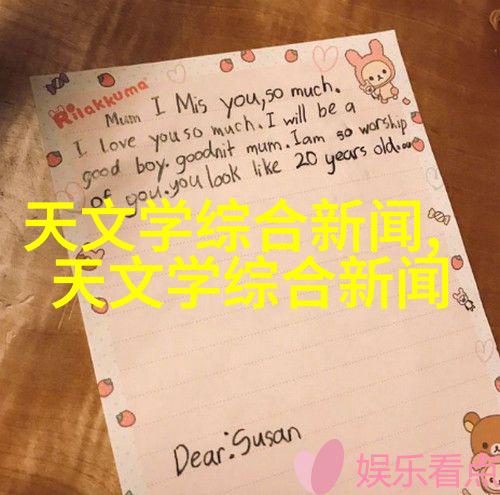 Rilakkuma
Mum I Mis you,so much.
I love you so much. I will be a
good boy. goodnit mum. Iam so worship
of you.you look like 20 years old....
天文学综合新闻,
天文学综合新闻
Dear:Susan
娱乐看点